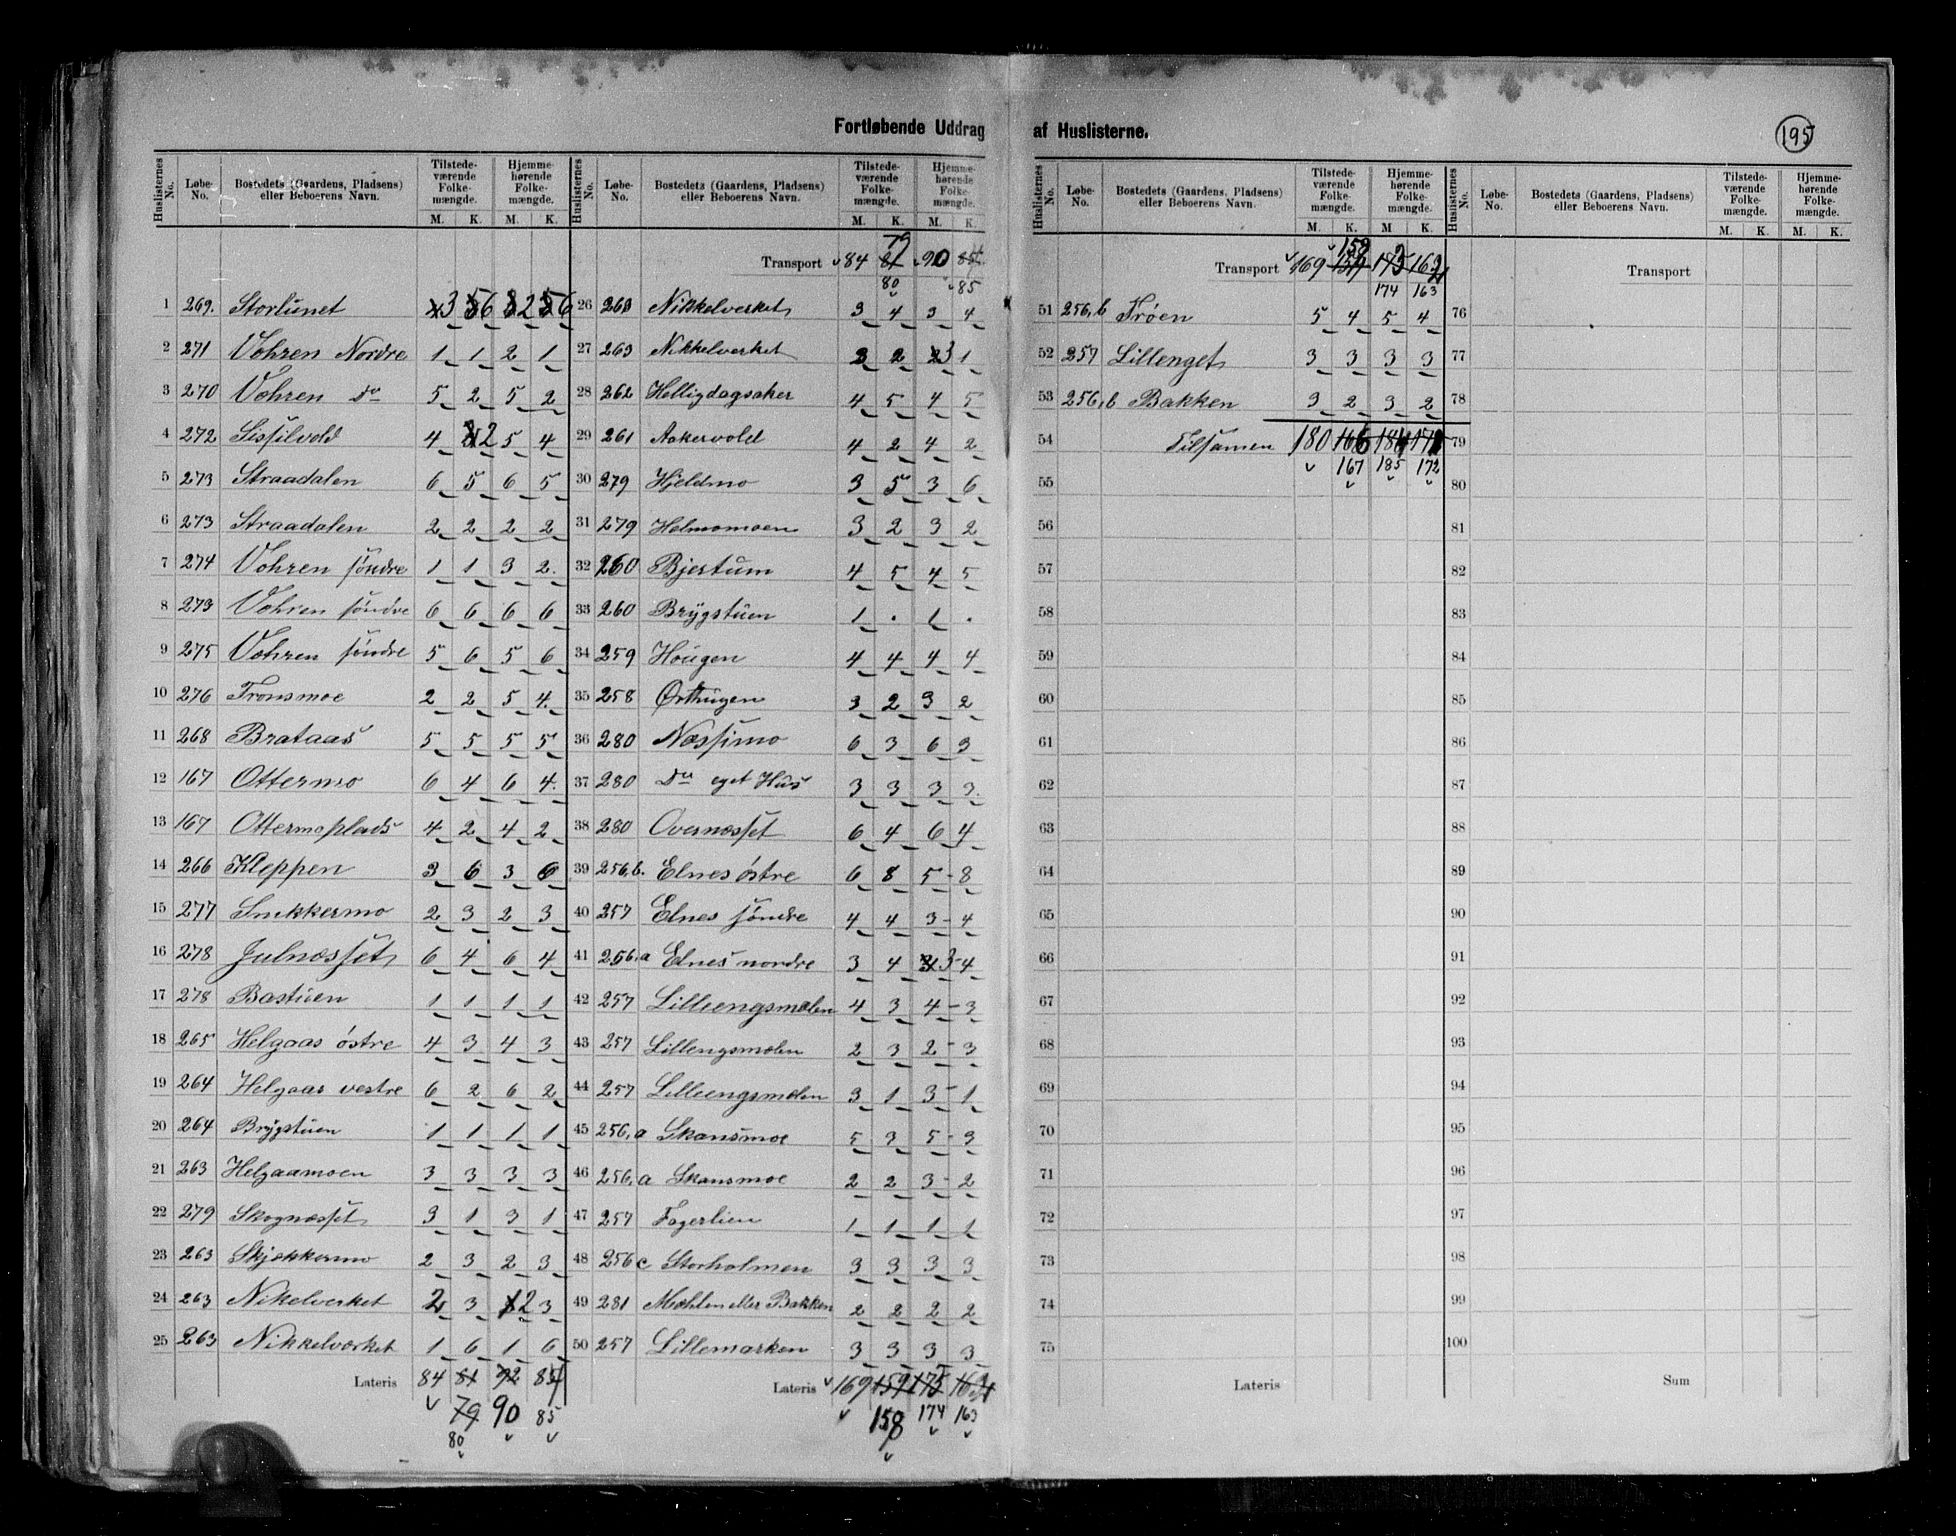 Fortløbende Uddrag af Huslisterne.
195
Huslisternes No. Løbe-No. Bostedets (Gaardens, Pladsens) eller Beboerens Navn. Tilstedeværende Folkemængde. M. K. Hjemmehørende Folkemængde. M. K.
1 269. Storlunet 3 6 2 6
2 271 Vohren Nordre 1 1 2 1
3 270 Vohren Do 5 2 5 2
4 272 Sissilvold 4 2 5 4
5 273 Straadalen 6 5 6 5
6 273 Straadalen 2 2 2 2
7 274 Vohren søndre 1 1 3 2.
8 273 Vohren søndre 6 6 6 6
9 275 Vohren søndre 5 6 5 6
10 276 Tronsmoe 2 2 5 4.
11 268 Brataas 5 5 5 5
12 167 Ottermo 6 4 6 4.
13 167 Ottermoplads 4 2 4 2
14 266 Kleppen 3 6 3 6
15 277 Snekkermo 2 3 2 3
16 278 Julnæsset 6 4 6 4
17 278 Bastuen 1 1 1 1
18 265 Helgaas østre 4 3 4 3
19 264 Helgaas vestre 6 2 6 2
20 264 Brygstuen 1 1 1 1
21 263 Helgaamoen 3 3 3 3
22 279 Skognæsset 3 1 3 1
23 263 Skjækkermo 2 3 2 3
24 263 Nikelverket 2 3 2 3
25 263 Nikkelværket 1 6 1 6
Lateris 84 81 92 85
79 90 85
80
Huslisternes No. Løbe-No. Bostedets (Gaardens, Pladsens) eller Beboerens Navn. Tilstedeværende Folkemængde. M. K. Hjemmehørende Folkemængde. M. K.
79
Transport 84 81 90 85
80 85
26 263 Nikkelverket 3 4 3 4
27 263 Nikkelverket 3 2 3 1
28 262 Helligdagsaker 4 5 4 5
29 261 Aakervold 4 2 4 2
30 279 Hjeldmo 3 5 3 6
31 279 Helmomoen 3 2 3 2
32 260 Bjertum 4 5 4 5
33 260 Brygstuen 1 . 1 .
34 259 Hougen 4 4 4 4
35 258 Ørthugen 3 2 3 2
36 280 Næssimo 6 3 6 3
37 280 Do eget Hus 3 3 3 3.
38 280 Overnæsset 6 4 6 4
39 256,b. Elnes østre 6 8 5 - 8
40 257 Elnes søndre 4 4 3 - 4
41 256,a Elnes nordre 3 4 3 - 4
42 257 Lilleengsmælen 4 3 4 - 3
43 257 Lillengsmælen 2 3 2 - 3
44 257 Lilleengsmælen 3 1 3 - 1
45 256,a Skansmoe 5 3 5 - 3
46 256,a Skansmoe 2 2 3 - 2
47 257 Fagerlien 1 1 1 1
48 256 c Storholmen 3 3 3 3
49 281 Mæhlen eller Bakken 2 2 2 2
50 257 Lillemarken 3 3 3 3
Lateris 169 159 175 163
158 174 163
Huslisternes No. Løbe-No. Bostedets (Gaardens, Pladsens) eller Beboerens Navn. Tilstedeværende Folkemængde. M. K. Hjemmehørende Folkemængde. M. K.
158
Transport 169 159 175 163
174 163
51 256,b Trøen 5 4 5 4
52 257 Lillenget 3 3 3 3
53 256,b Bakken 3 2 3 2
54 Tilsamen 180
167 185 172
55
56
57
58
59
60
61
62
63
64
65
66
67
68
69
70
71
72
73
74
75
Lateris
Huslisternes No. Løbe-No. Bostedets (Gaardens, Pladsens) eller Beboerens Navn. Tilstedeværende Folkemængde. M. K. Hjemmehørende Folkemængde. M. K.
Transport
76
77
78
79
80
81
82
83
84
85
86
87
88
89
90
91
92
93
94
95
96
97
98
99
100
Sum